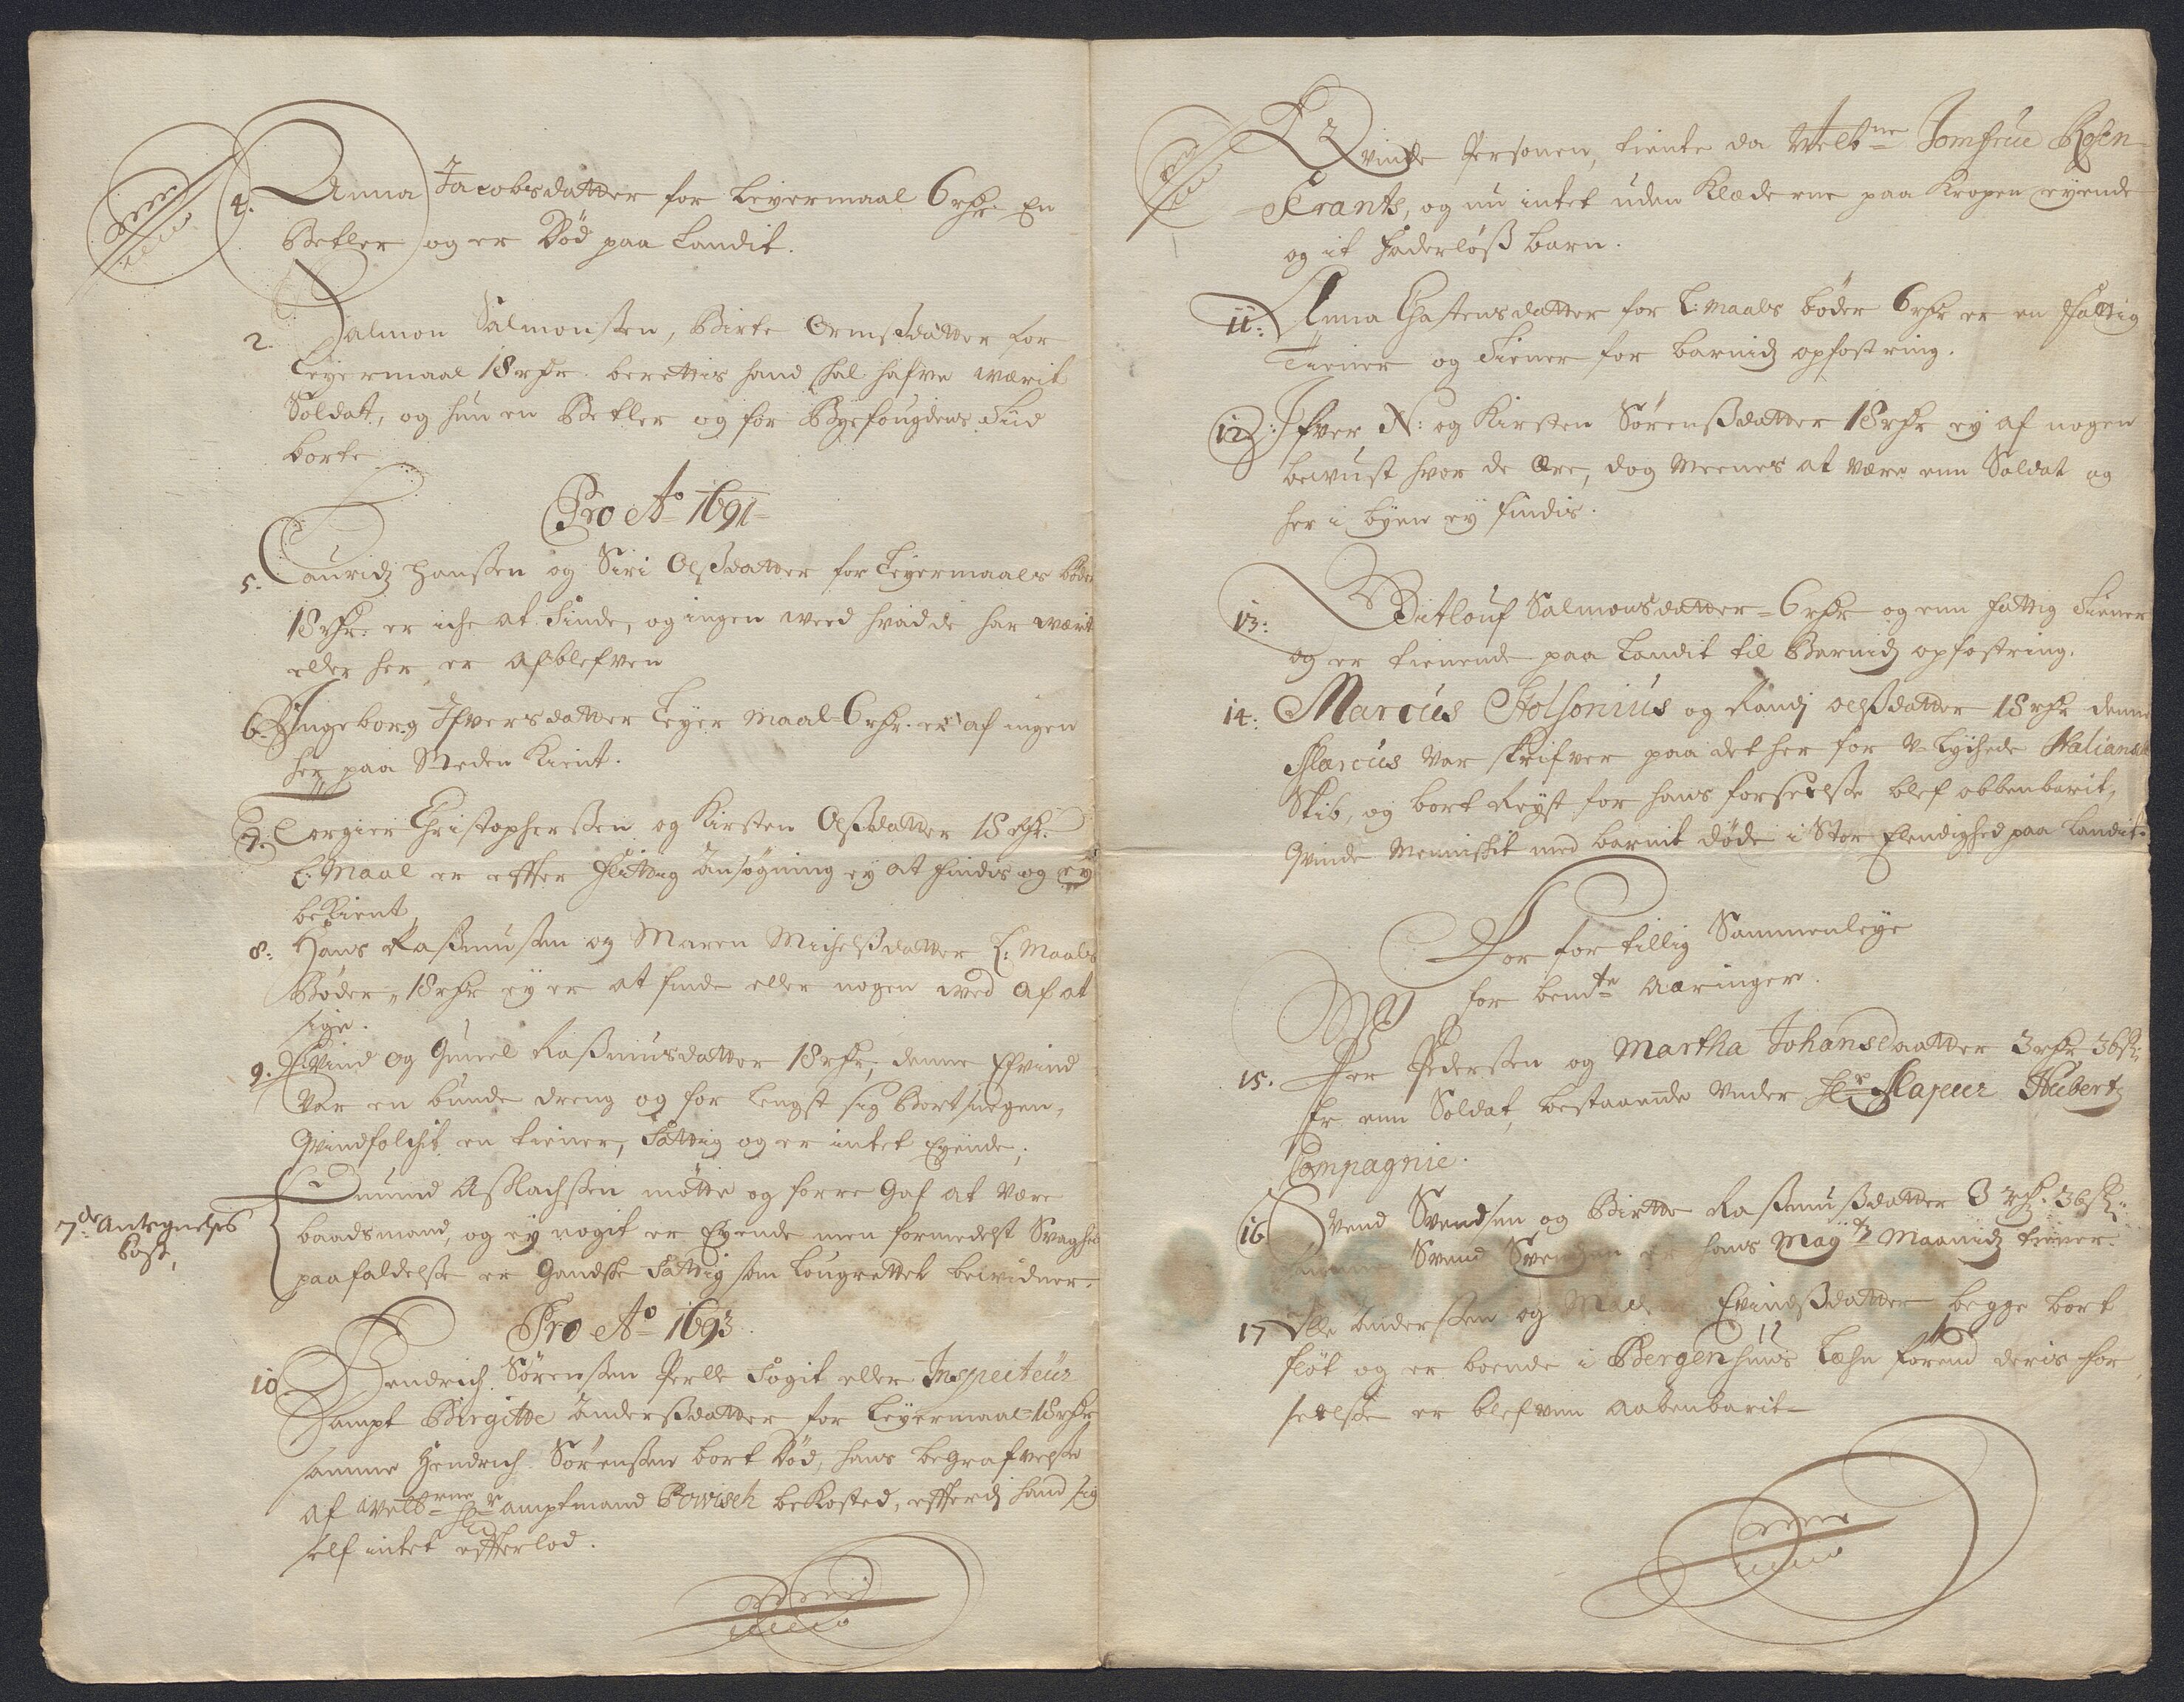 4. Anna Jacobsdatter for Leyermaal 6 rdr. En
Betler og er Död paa Landit.
2. Salmon Salmonssen, Birte Ormsdatter for
Leyermaal 18 rdr. berettis hand skal hafve wærit
Soldat, og hun en Betler og for Byefougdens Tiid
borte
Pro Ao 1691
5. Lauridz Hanssen og Siri Olsdatter for Leyermaals böder
18 rdr. er iche at finde, og ingen weed hvad de har wærit
eller her er afblefven
6. Ingeborg Ifversdatter Leyer maal 6 rdr. er af ingen
her paa Steden Kient.
7. Torgier Christopherssen og Kirsten Olsdatter 18 rdr.
L: Maal er effter flittig Ansögning ey at findis og ey
bekient
8: Hans Rasmussen og Maren Michelsdatter L: Maals
Böder, 18 rdr ey er at finde eller nogen wed af at
sige.
9. Efvind og Gunel Rasmusdatter 18 rdr, denne Efvind
Var en bunde dreng og for lengst sig bort,
Qvindfolchit en tiener, fattig og er intet Eyende,
7de Antegnelses
Post,
Amund Aslachssen mötte og forre gaf at være
baadsmand, og ey nogit er Eyende men formedelst Svaghed
paafaldelse er Gandske fattig som Lougrettet bewidner.
Pro Ao 1693.
10 Hendrich Sörenssen Perlle fogit eller Inspecteur
Sampt Birgitte Andersdatter for Leyermaal 18 rdr
samme Hendrich Sörenssen bort död, hans begrafvelse
af welb:rne Hr Amptmand Powisch bekosted, efferdi hand sig
self intet effterlod.
Qvinde Personen, tiente da Welbne Jomfrue Rosen
Krants, og nu intet uden Klæderne paa Kropen eyende
og it faderlöss barn.
11: Anna Chastensdatter for L: Maals böder 6 rdr er en fattig
Tiener og tiener for barnidz opfostring.
12: Ifver N: og Kirsten Sörensdatter 18 rdr ey af nogen
bewust hvor de Ere, dog meenes at være enn Soldat og
her i byen ey findis.
13: Ditlouf Salmonsdatter 6 rdr og enn fattig tiener
og er tienende paa Landit til Barnidz opfostring.
14: Marcus Stolsonius og Randj Olsdatter 18 rdr denne
Marcus var skrifver paa det her for V-lychede Italiansk
Skib, og bort Reyst for hans forseelse blef obbenbarit,
Qvinde Mennischit med barnit döde i Stor Elendighed paa Landit.
For for tillig Sammenleye
for bemte Aaringer.
15. Per Pederssen og Martha Johansdaatter 3 rdr 36 s:
Er enn Soldat, bestaaende under Hr Majeur Hubertz
Compagnie.
16 Svend Svendsen og Birtte Rasmusdatter 3 rdr: 36 s:
Svend Svendsen er hans Maytz Maanidz tiener.
17 Olle Anderssen og Evindsdatter begge bort
flöt og er boende i Bergenhuus Læhn forend deris for
seelse er blefven Aabenbarit